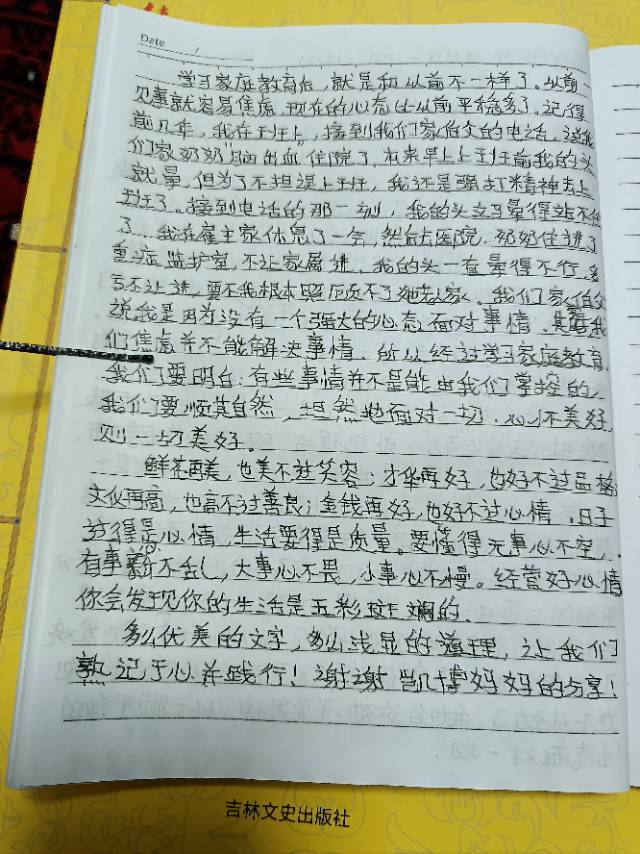 Date /
学习家庭教育后，就是和以前不一样了。以前一
见事就容易焦虑，现在的心态比以前平稳多了。记得
前几年，我在班上，接到我们家伯父的电话，说我
们家奶奶"脑出血"住院了，本来早上上班前我的头
就晕，但为了不耽误上班，我还是强打精神去上
班了。接到电话的那一刻，我的头立马晕得站不住
了。我在雇主家休息了一会，然后去医院。奶奶住进了
重症监护室，不让家属进，我的头一直晕得不行，多
亏不让进，要不我根本照顾不了她老人家。我们家伯父
说我是因为没有一个强大的心态面对事情，其实我
们焦虑并不能解决事情，所以经过学习家庭教育，
我们要明白：有些事情并不是能由我们掌控的，
我们要顺其自然，坦然地面对一切，心怀美好，
则一切美好。
鲜花再美，也美不过笑容；才华再好，也好不过品格；
文化再高，也高不过善良；金钱再好，也好不过心情，日子
过得是心情，生活要得是质量。要懂得无事心不空，
有事心不乱，大事心不畏，小事心不慢。经营好心情
你会发现你的生活是五彩斑斓的。
多么优美的文字，多么浅显的道理，让我们
熟记于心并践行！谢谢凯博妈妈的分享！
吉林文史出版社